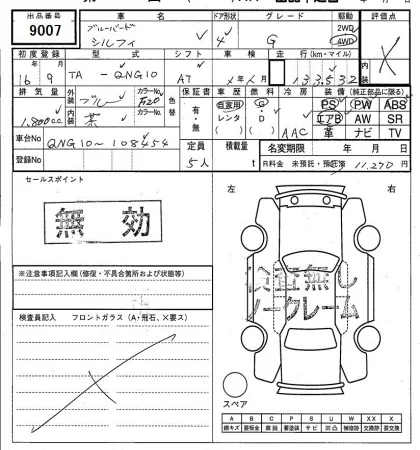 出品番号 車名 ドア形状 グレード 駆動 評価点
9007 ブルーバード シルフィ 4 G 2WD 4WD
初度登録 型式 シフト 車検 走行(km・マイル) 内装
16 9 TA - QNG10 AT 133532
排気量 外装 カラーNo 色替 保証書 車歴 燃料 冷房 装備(純正部品に限る)
1,800cc ブルー 有・無 自家用 レンタ G・D AAC PS PW ABS
内装 茶 カラーNo エアB AW SR
車台No QNG10-108454 定員 積載量 革 ナビ TV
登録No 5人 t 名変期限 年 月 日
R料金 未預託・預託済 11,270円
セールスポイント
無効
左 右
※注意事項記入欄(修復・不具合箇所および状態等)
検査無し
ノークレーム
検査員記入 フロントガラス(A・飛石、×要ス)
スペア
A B C P S U W X XX
線キズ 要板金 腐蝕 要塗装 サビ 凹凸 補修跡 要交換